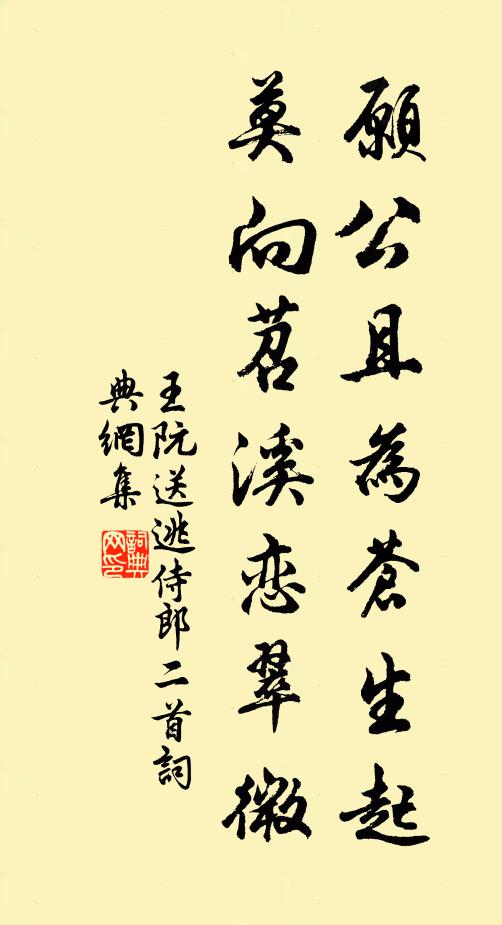 願公且為蒼生起
莫向苕溪恋翠微
王阮送逃侍郎二首詞
典網集
詞典
网印